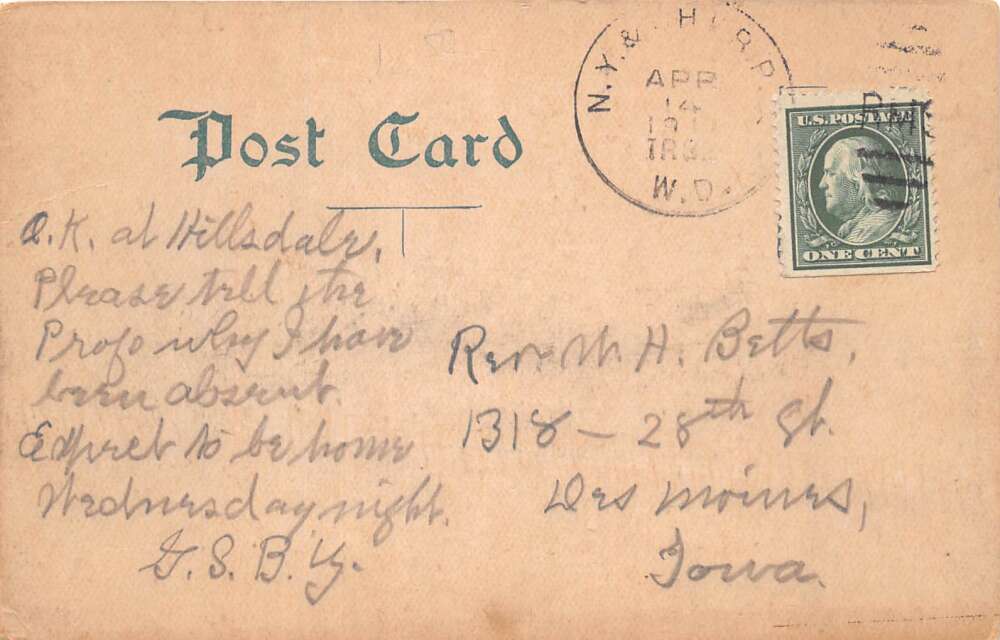 Post Card
N.Y. &
APR
14
W.D.
RMS
U.S. POSTAGE
ONE CENT
O.K. at Hillsdale,
Please tell the
Profs why I have
been absent.
Expect to be home
Wednesday night.
G. S. B. Y.
Rev. W. H. Betts,
1318 - 28th St.
Des Moines,
Iowa.